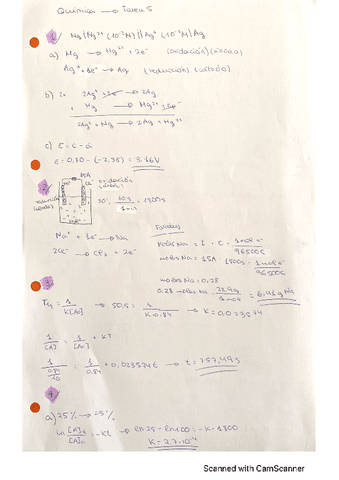 Química → Tarea 5
1/ Mg|Mg²⁺ (10⁻³M)||Ag⁺ (10⁻³M)|Ag
a) Mg → Mg²⁺ + 2e⁻ (oxidación)(ánodo)
Ag⁺ + 1e⁻ → Ag (reducción) (cátodo)
b) 2Ag⁺ → 2Ag
Mg → Mg²⁺
2Ag⁺ + Mg → 2Ag + Mg²⁺
c) E = c - a
E = 0,80 - (-2,38) = 3.16V
2/
15A
oxidación
(ánodo)
reducción
(cátodo)
30', = 1800s
Na⁺ + 1e⁻ → Na
2Cl⁻ → Cl₂ + 2e⁻
Faraday
moles Na = I · t · 1mol e⁻ / 96500C
moles Na = 15A · 1800s · 1mol e⁻ / 96500C
moles Na = 0.28
0.28 moles Na · = 6.41g Na
3.
= 1 / K[A]₀ → 50,5 = 1 / K·0.84 → K = 0,023574
1/[A] = 1/[A]₀ + KT
= 1/0.84 + 0,023574 t → t = 757,49s
4
a) 75% → 25%
ln [A]t/[A]₀ = -Kt → ln 25 - ln 100 = -K · 1800
K = 7.7·10⁻⁴
Scanned with CamScanner